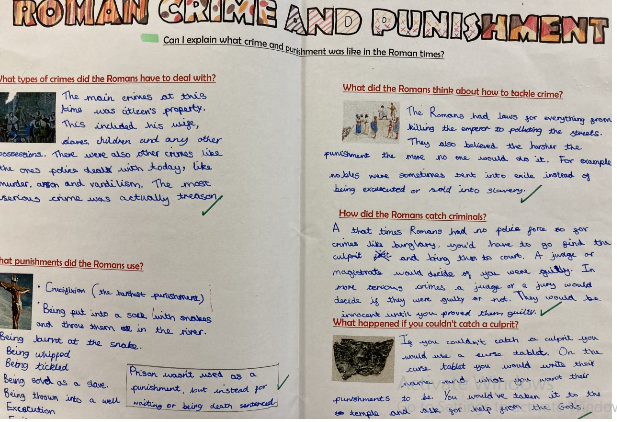 ROMAN CRIME AND PUNISHMENT
Can I explain what crime and punishment was like in the Roman times?
What types of crimes did the Romans have to deal with?
The main crimes at this
time was citizen's property.
This included his wife,
slaves, children and any other
possessions. There were also other crimes like
the ones police deals with today, like
murder, arson and vandilism. The most
serious crime was actually treason
What punishments did the Romans use?
• Crucifixion (the harshest punishment)
• Being put into a sack with snakes
and throw them in the river.
Being burnt at the snake.
Being whipped
Being tickled
Being sold as a slave.
Being thrown into a well
Execution
Prison wasn't used as a
punishment, but instead for
waiting or being death sentenced
What did the Romans think about how to tackle crime?
The Romans had laws for everything from
killing the emperor to polluting the streets.
They also believed the harsher the
punishment the more no one would do it. For example
nobles were sometimes sent into exile instead of
being executed or sold into slavery.
How did the Romans catch criminals?
A that times Romans had no police force so for
crimes like burglary, you'd have to go find the
culprit and bring them to court. A judge or
magistrate would decide if you were guilty. In
more serious crimes a judge or a jury would
decide if they were guilty or not. They would be
innocent until you proved them guilty.
What happened if you couldn't catch a culprit?
If you couldn't catch a culprit you
would use a curse tablet. On the
curse tablet you would write their
name and what you want their
punishments to be. You would've taken it to the
temple and ask for help from the Gods.